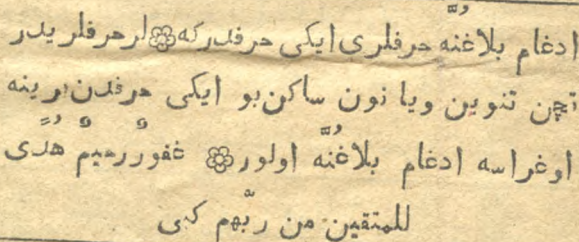 ادغام بلاغُنَّه حرفلرى ايكى حرفدركه ۞ لر حرفلريدر
قچن تنوين ويا نون ساكن بو ايكى حرفدن برينه
اوغراسه ادغام بلاغُنَّه اولور ۞ غفورٌ رحيمٌ هُدًى
للمتقين من ربّهم كبى